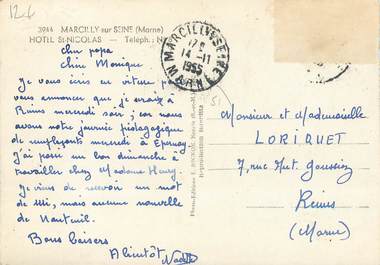 12.f
3944 MARCILLY sur SEINE (Marne)
HOTEL St-NICOLAS — Teleph.: N
MARCILLY-S-SEINE
17H
14-11
1955
MARNE
51
Cher papa
Chère Monique.
Je vous écris en vitesse pour
vous annoncer que je serai à
Reims mercredi soir; car nous
avons notre journée pédagogique
de remplaçants mercredi à Epernay
J'ai passé un bon dimanche à
travailler chez Madame Henry.
Je viens de recevoir un mot
de Mi, mais aucune nouvelle
de Nanteuil.
Bons baisers
A bientôt
Monsieur et Mademoiselle
LORIQUET
7, rue
Reims
(Marne)